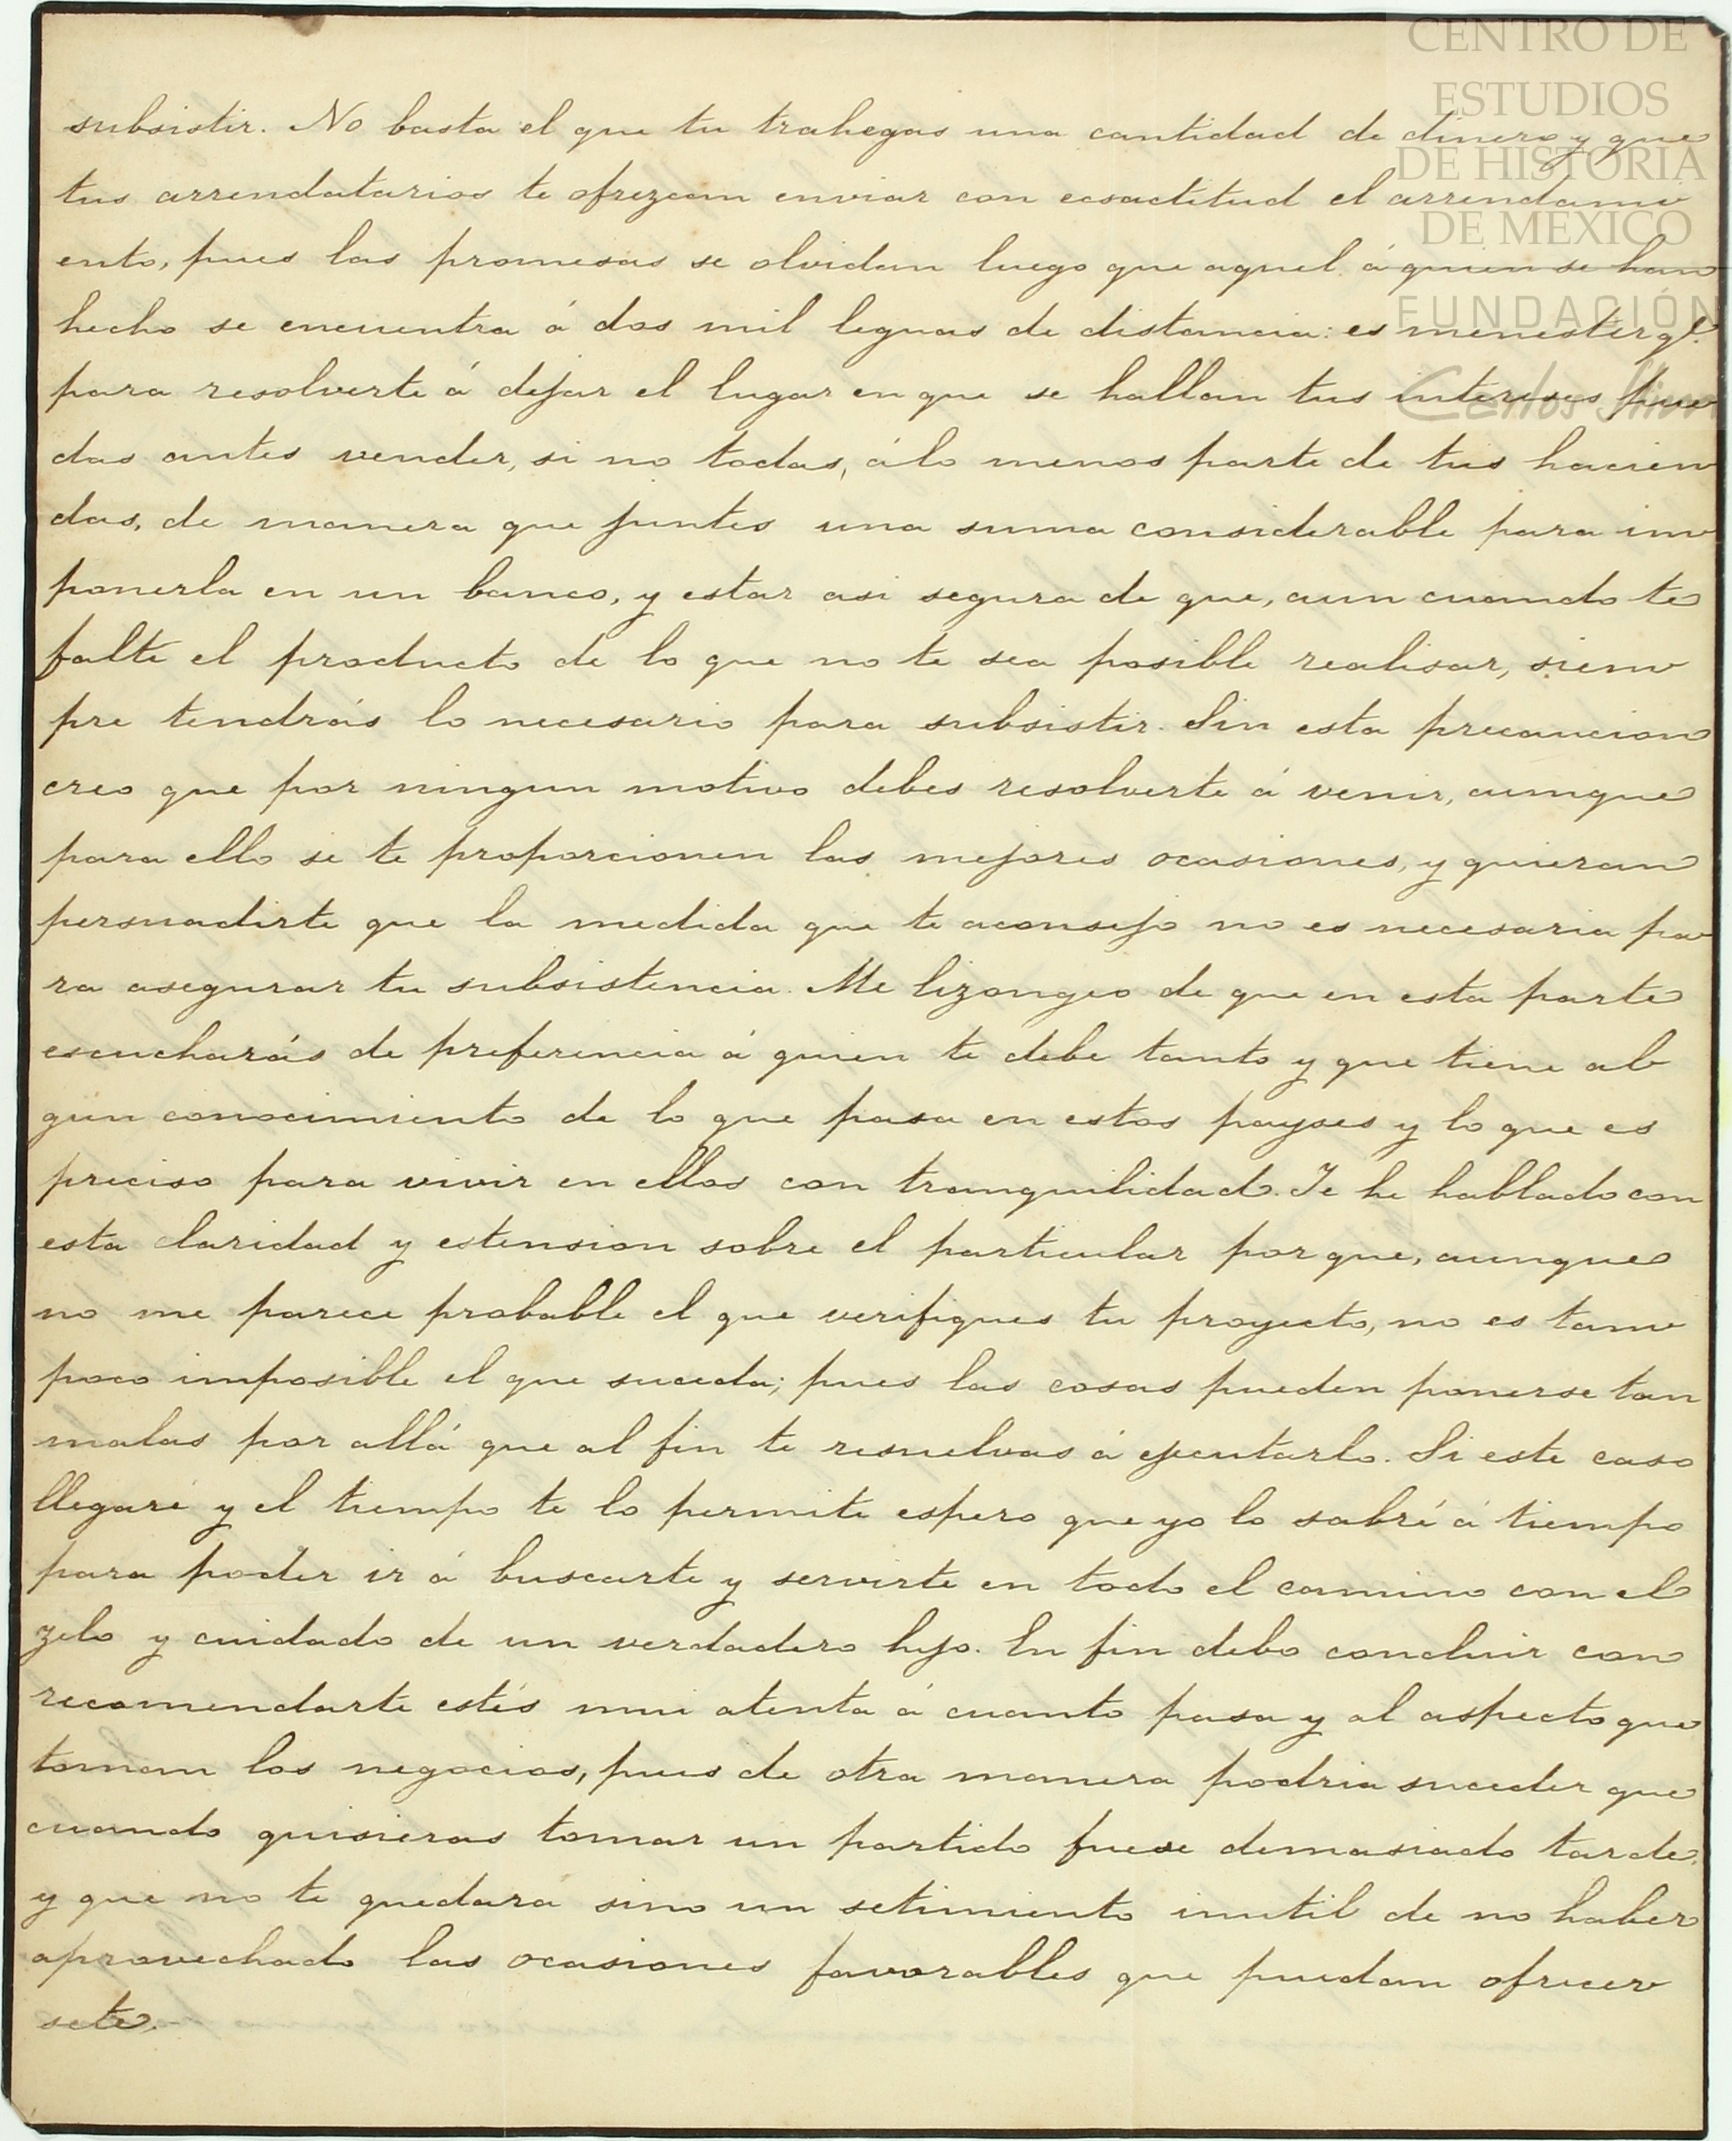 CENTRO DE
ESTUDIOS
DE HISTORIA
DE MEXICO
FUNDACIÓN
Carlos Slim
subsistir. No basta el que tu trahegas una cantidad de dinero y que
tus arrendatarios te ofrezcan enviar con ecsactitud el arrendami
ento, pues las promesas se olvidan luego que aquel á quien se han
hecho se encuentra á dos mil leguas de distancia: es menester qe.
para resolverte á dejar el lugar en que se hallan tus intereses pue
das antes vender, si no todas, álo menos parte de tus hacien
das, de manera que juntes una suma considerable para im
ponerla en un banco, y estar asi segura de que, aun cuando te
falte el producto de lo que no te sea posible realisar, siem
pre tendrás lo necesario para subsistir. Sin esta precaucion
creo que por ningun motivo debes resolverte á venir, aunque
para ello se te proporcionen las mejores ocasiones, y quieran
persuadirte que la medida que te aconsejo no es necesaria pa
ra asegurar tu subsistencia. Me lizongeo de que en esta parte
escucharás de preferencia á quien te debe tanto y que tiene al
gun conocimiento de lo que pasa en estos payses y lo que es
preciso para vivir en ellos con tranquilidad. Te he hablado con
esta claridad y estension sobre el particular por que, aunque
no me parece probable el que verifiques tu proyecto, no es tam
poco imposible el que suceda; pues las cosas pueden ponerse tan
malas por allá que al fin te resuelvas á ejecutarlo. Si este caso
llegare y el tiempo te lo permite espero que yo lo sabré á tiempo
para poder ir á buscarte y servirte en todo el camino con el
zelo y cuidado de un verdadero hijo. En fin debo concluir con
recomendarte estés mui atenta á cuanto pasa y al aspecto que
toman los negocios, pues de otra manera podria suceder que
cuando quisieras tomar un partido fuese demasiado tarde,
y que no te quedara sino un setimiento inutil de no haber
aprovechado las ocasiones favorables que puedan ofrecer
sete.